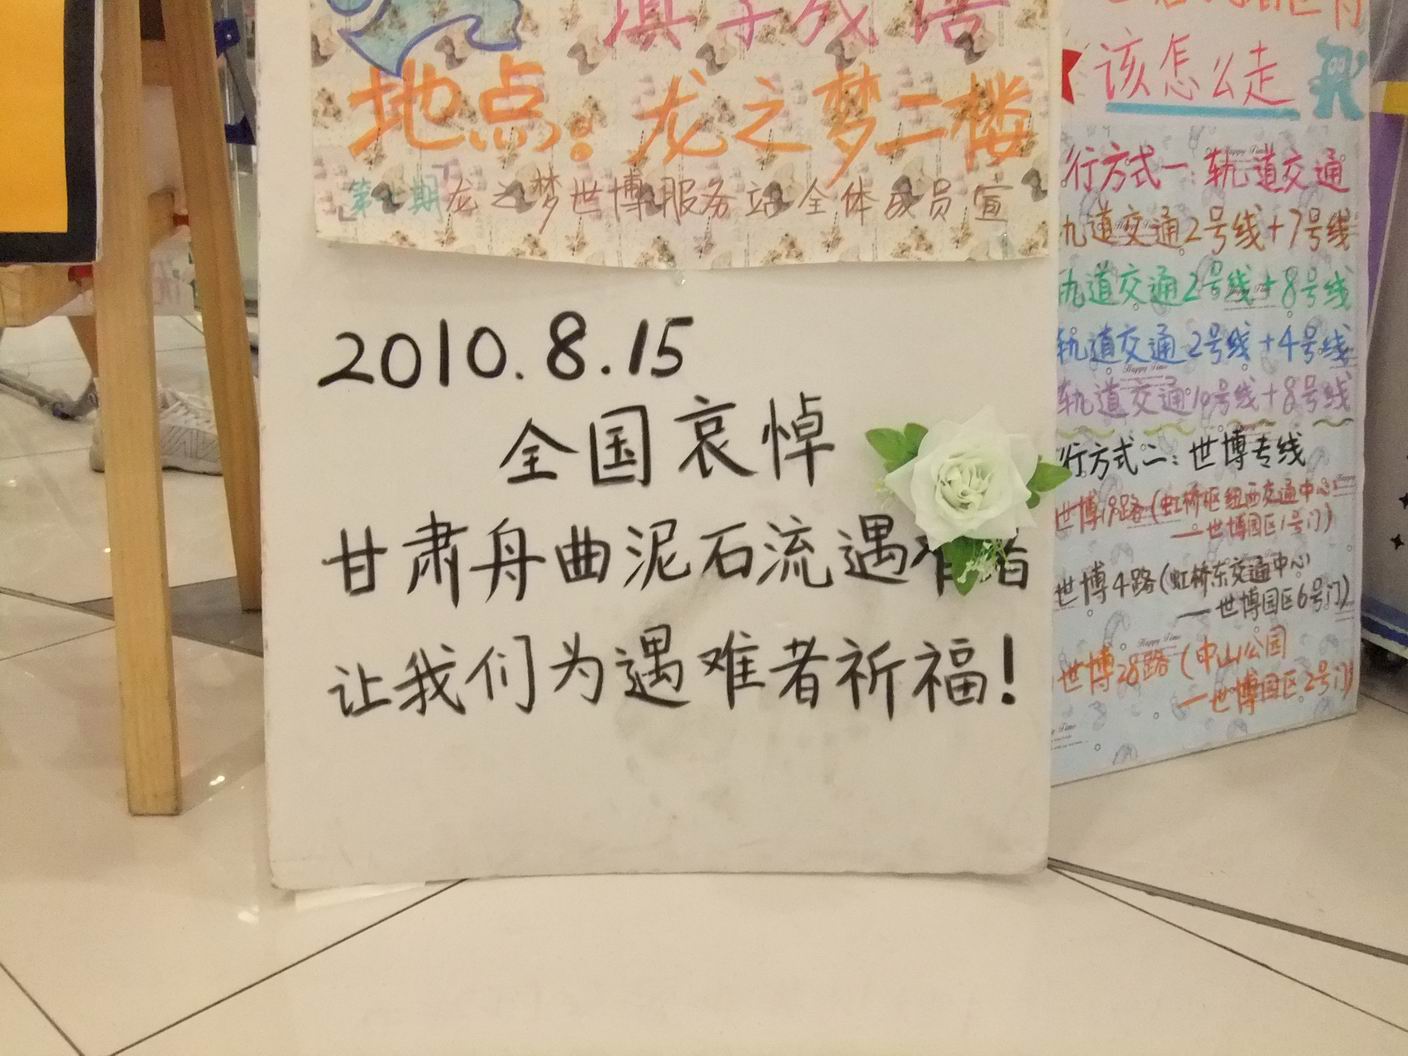 填字成语
地点：龙之梦二楼
第七期龙之梦世博服务站全体成员宣
2010.8.15
全国哀悼
甘肃舟曲泥石流遇难者
让我们为遇难者祈福！
该怎么走
行方式一：轨道交通
轨道交通2号线+7号线
轨道交通2号线+8号线
轨道交通2号线+4号线
轨道交通10号线+8号线
行方式二：世博专线
世博19路(虹桥枢纽西交通中心
—世博园区1号门)
世博4路(虹桥东交通中心
—世博园区6号门)
世博28路(中山公园
—世博园区2号门)